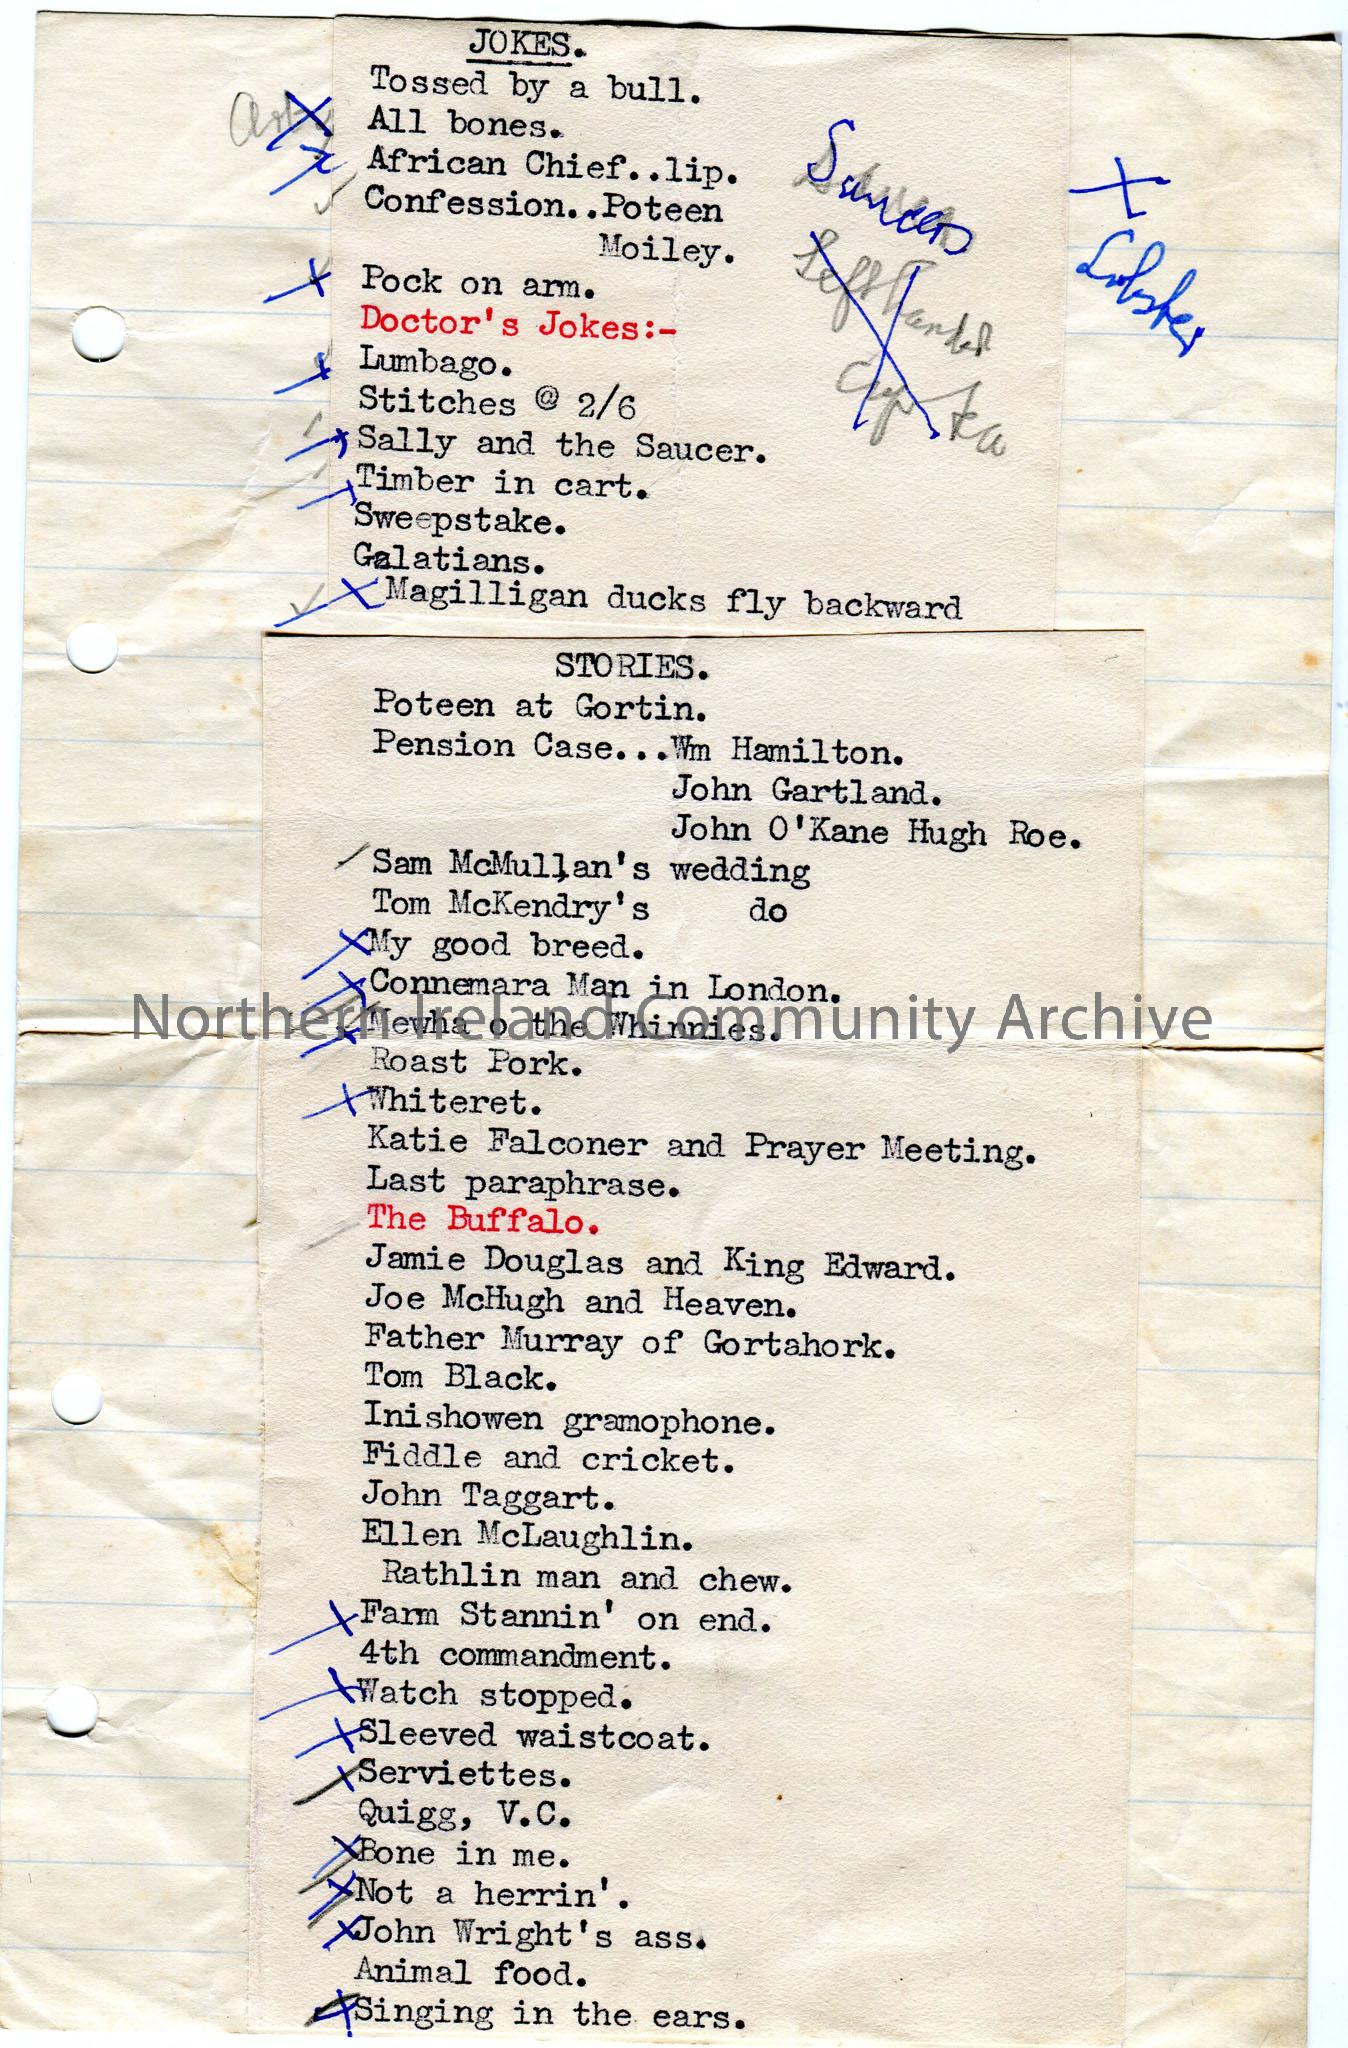 JOKES.
Tossed by a bull.
All bones.
African Chief..lip.
Confession..Poteen
Moiley.
Pock on arm.
Doctor's Jokes:-
Lumbago.
Stitches @ 2/6
Sally and the Saucer.
Timber in cart.
Sweepstake.
Galatians.
Magilligan ducks fly backward
Saucers
Left handed
Cup tea
Lobster
STORIES.
Poteen at Gortin.
Pension Case...Wm Hamilton.
John Gartland.
John O'Kane Hugh Roe.
Sam McMullan's wedding
Tom McKendry's do
My good breed.
Connemara Man in London.
Newha o the Whinnies.
Northern Ireland Community Archive
Roast Pork.
Whiteret.
Katie Falconer and Prayer Meeting.
Last paraphrase.
The Buffalo.
Jamie Douglas and King Edward.
Joe McHugh and Heaven.
Father Murray of Gortahork.
Tom Black.
Inishowen gramophone.
Fiddle and cricket.
John Taggart.
Ellen McLaughlin.
Rathlin man and chew.
Farm Stannin' on end.
4th commandment.
Watch stopped.
Sleeved waistcoat.
Serviettes.
Quigg, V.C.
Bone in me.
Not a herrin'.
John Wright's ass.
Animal food.
Singing in the ears.